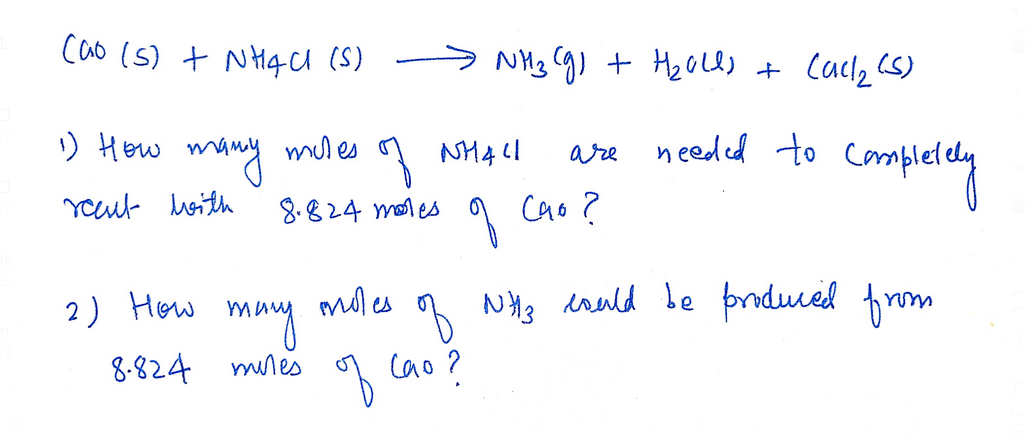 CaO (s) + NH4Cl (s) ⟶ NH3 (g) + H2O(l) + CaCl2 (s)
1) How many moles of NH4Cl are needed to completely
react with 8.824 moles of CaO?
2) How many moles of NH3 could be produced from
8.824 moles of CaO?